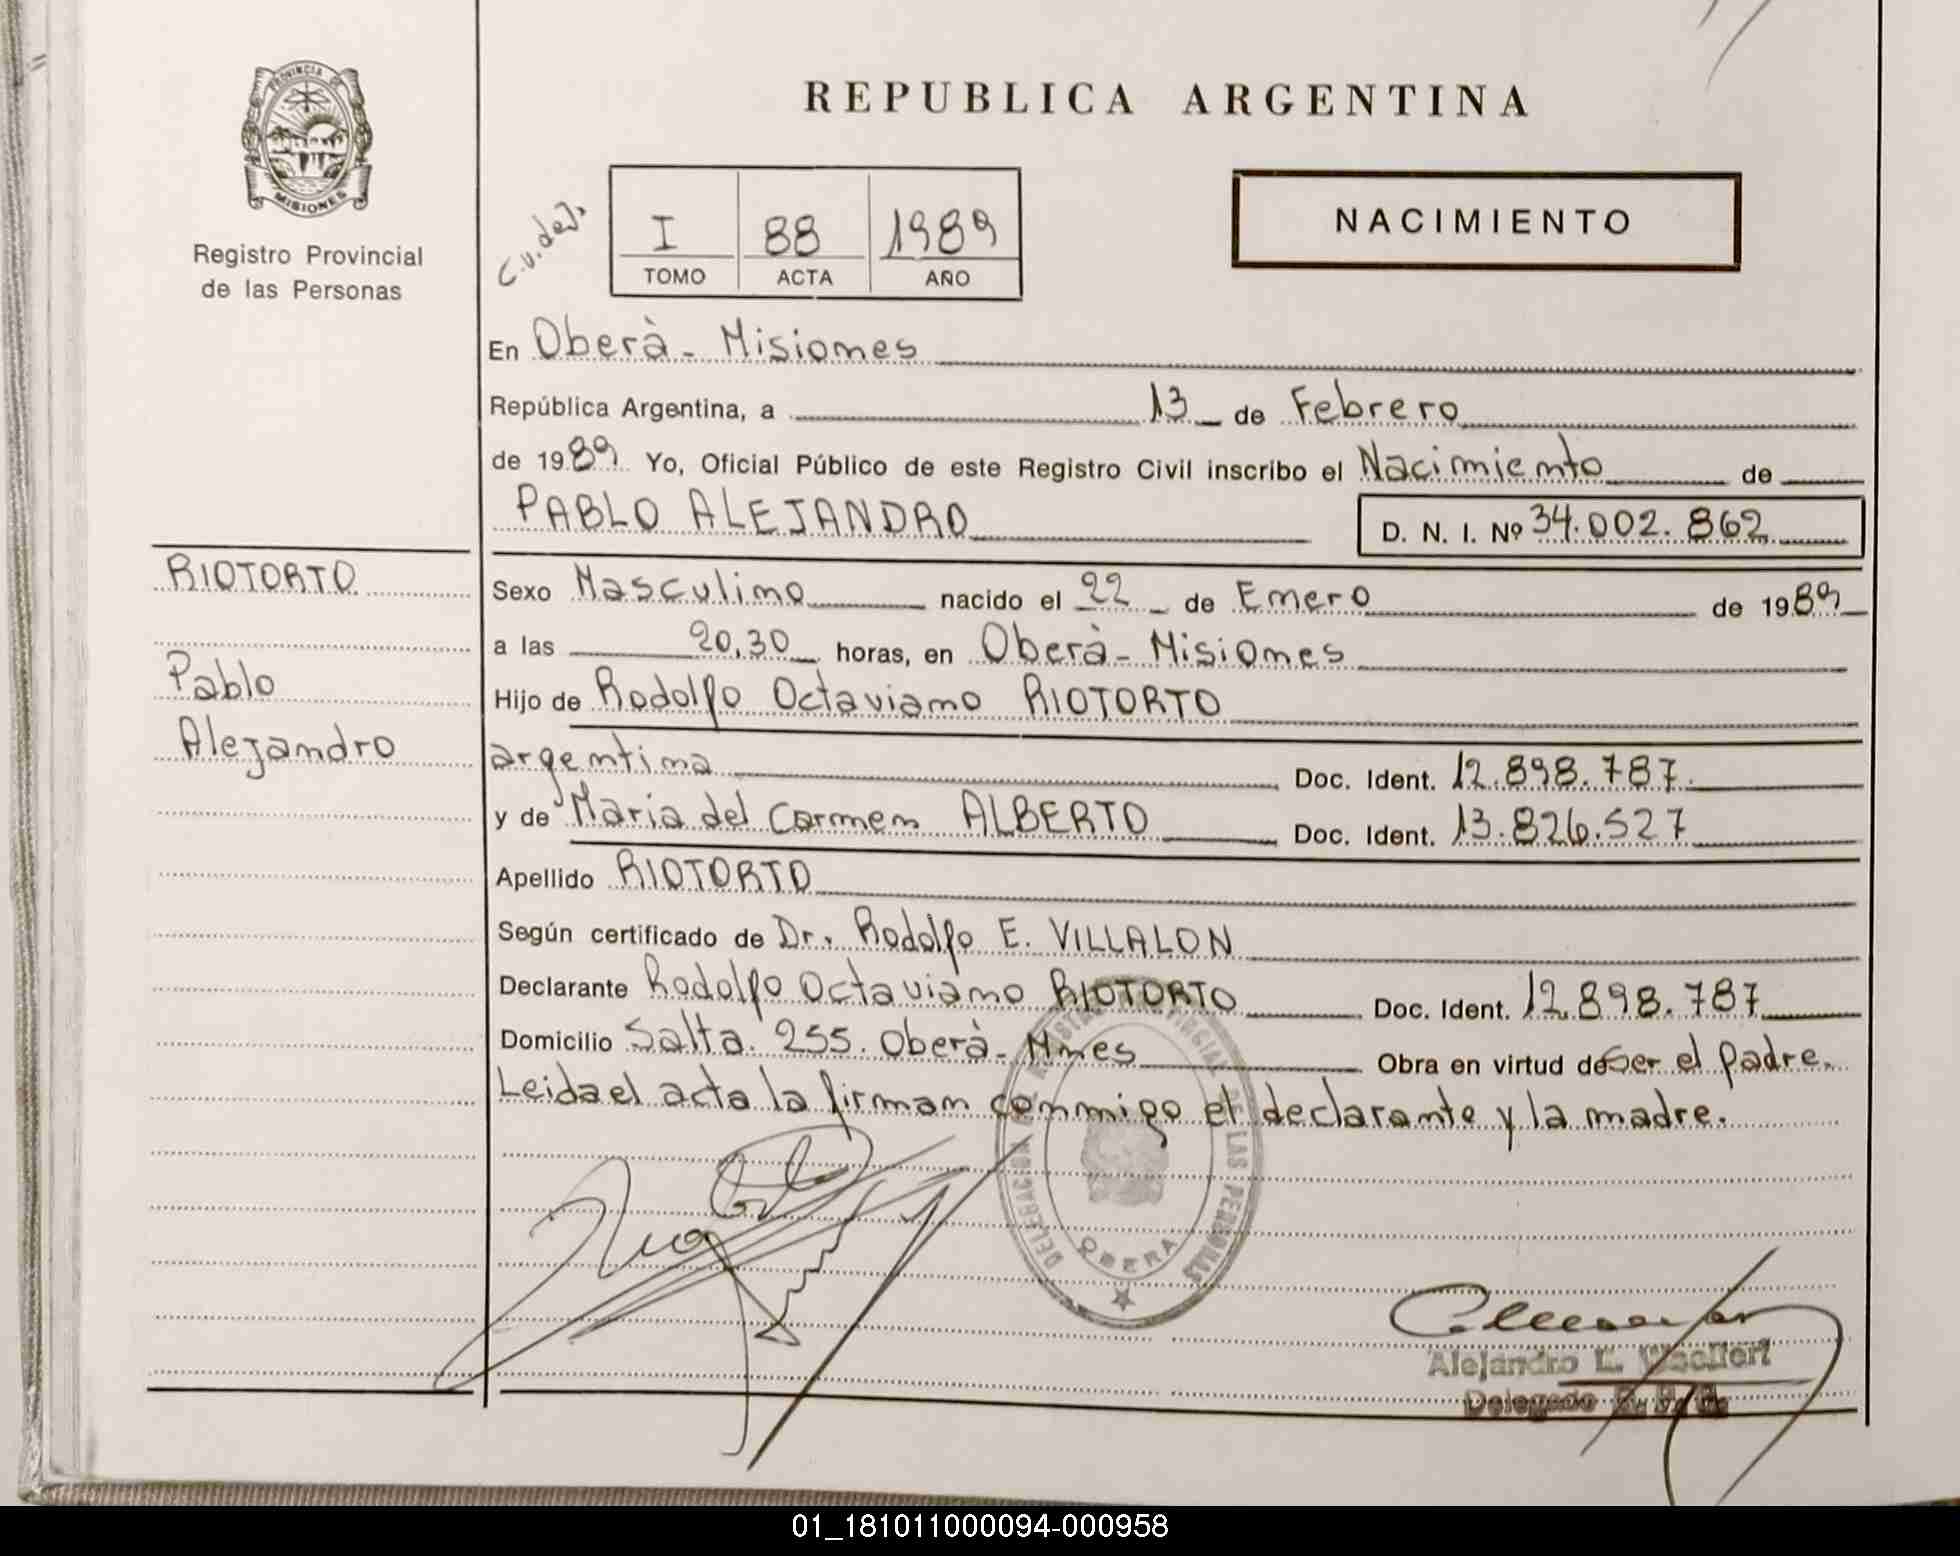 PROVINCIA DE
MISIONES
Registro Provincial
de las Personas
REPUBLICA ARGENTINA
C.V. de J.
I 88 1989
TOMO ACTA AÑO
NACIMIENTO
En Oberà - Misiones
República Argentina, a 13 de Febrero
de 1989 Yo, Oficial Público de este Registro Civil inscribo el Nacimiento de
PABLO ALEJANDRO D. N. I. Nº 34.002.862
RIOTORTO
Pablo
Alejandro
Sexo Masculino nacido el 22 de Enero de 1989
a las 20,30 horas, en Oberà - Misiones
Hijo de Rodolfo Octaviano RIOTORTO
argentina Doc. Ident. 12.898.787.
y de Maria del Carmen ALBERTO Doc. Ident. 13.826.527
Apellido RIOTORTO
Según certificado de Dr. Rodolfo E. VILLALON
Declarante Rodolfo Octaviano RIOTORTO Doc. Ident. 12.898.787
Domicilio Salta. 255. Oberà - Mnes Obra en virtud de Ser el padre.
Leida el acta la firman conmigo el declarante y la madre.
DELEGACION REGISTRO PROVINCIAL DE LAS PERSONAS
OBERA
Alejandro L.
Delegado
01_181011000094-000958